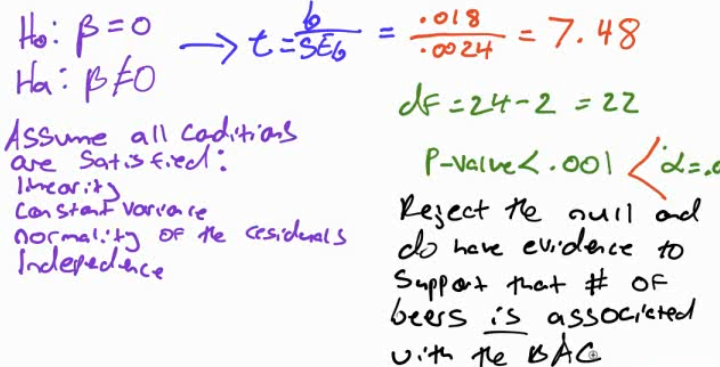 H₀: β = 0
Ha: β ≠ 0
→ t = b/SEb = .018/.0024 = 7.48
df = 24 - 2 = 22
P-value < .001 < α = .0
Assume all coditions
are satisfied:
linearity
constant variance
normality of the residuals
Indepedence
Reject the null and
do have evidence to
support that # of
beers is associated
with the BAC